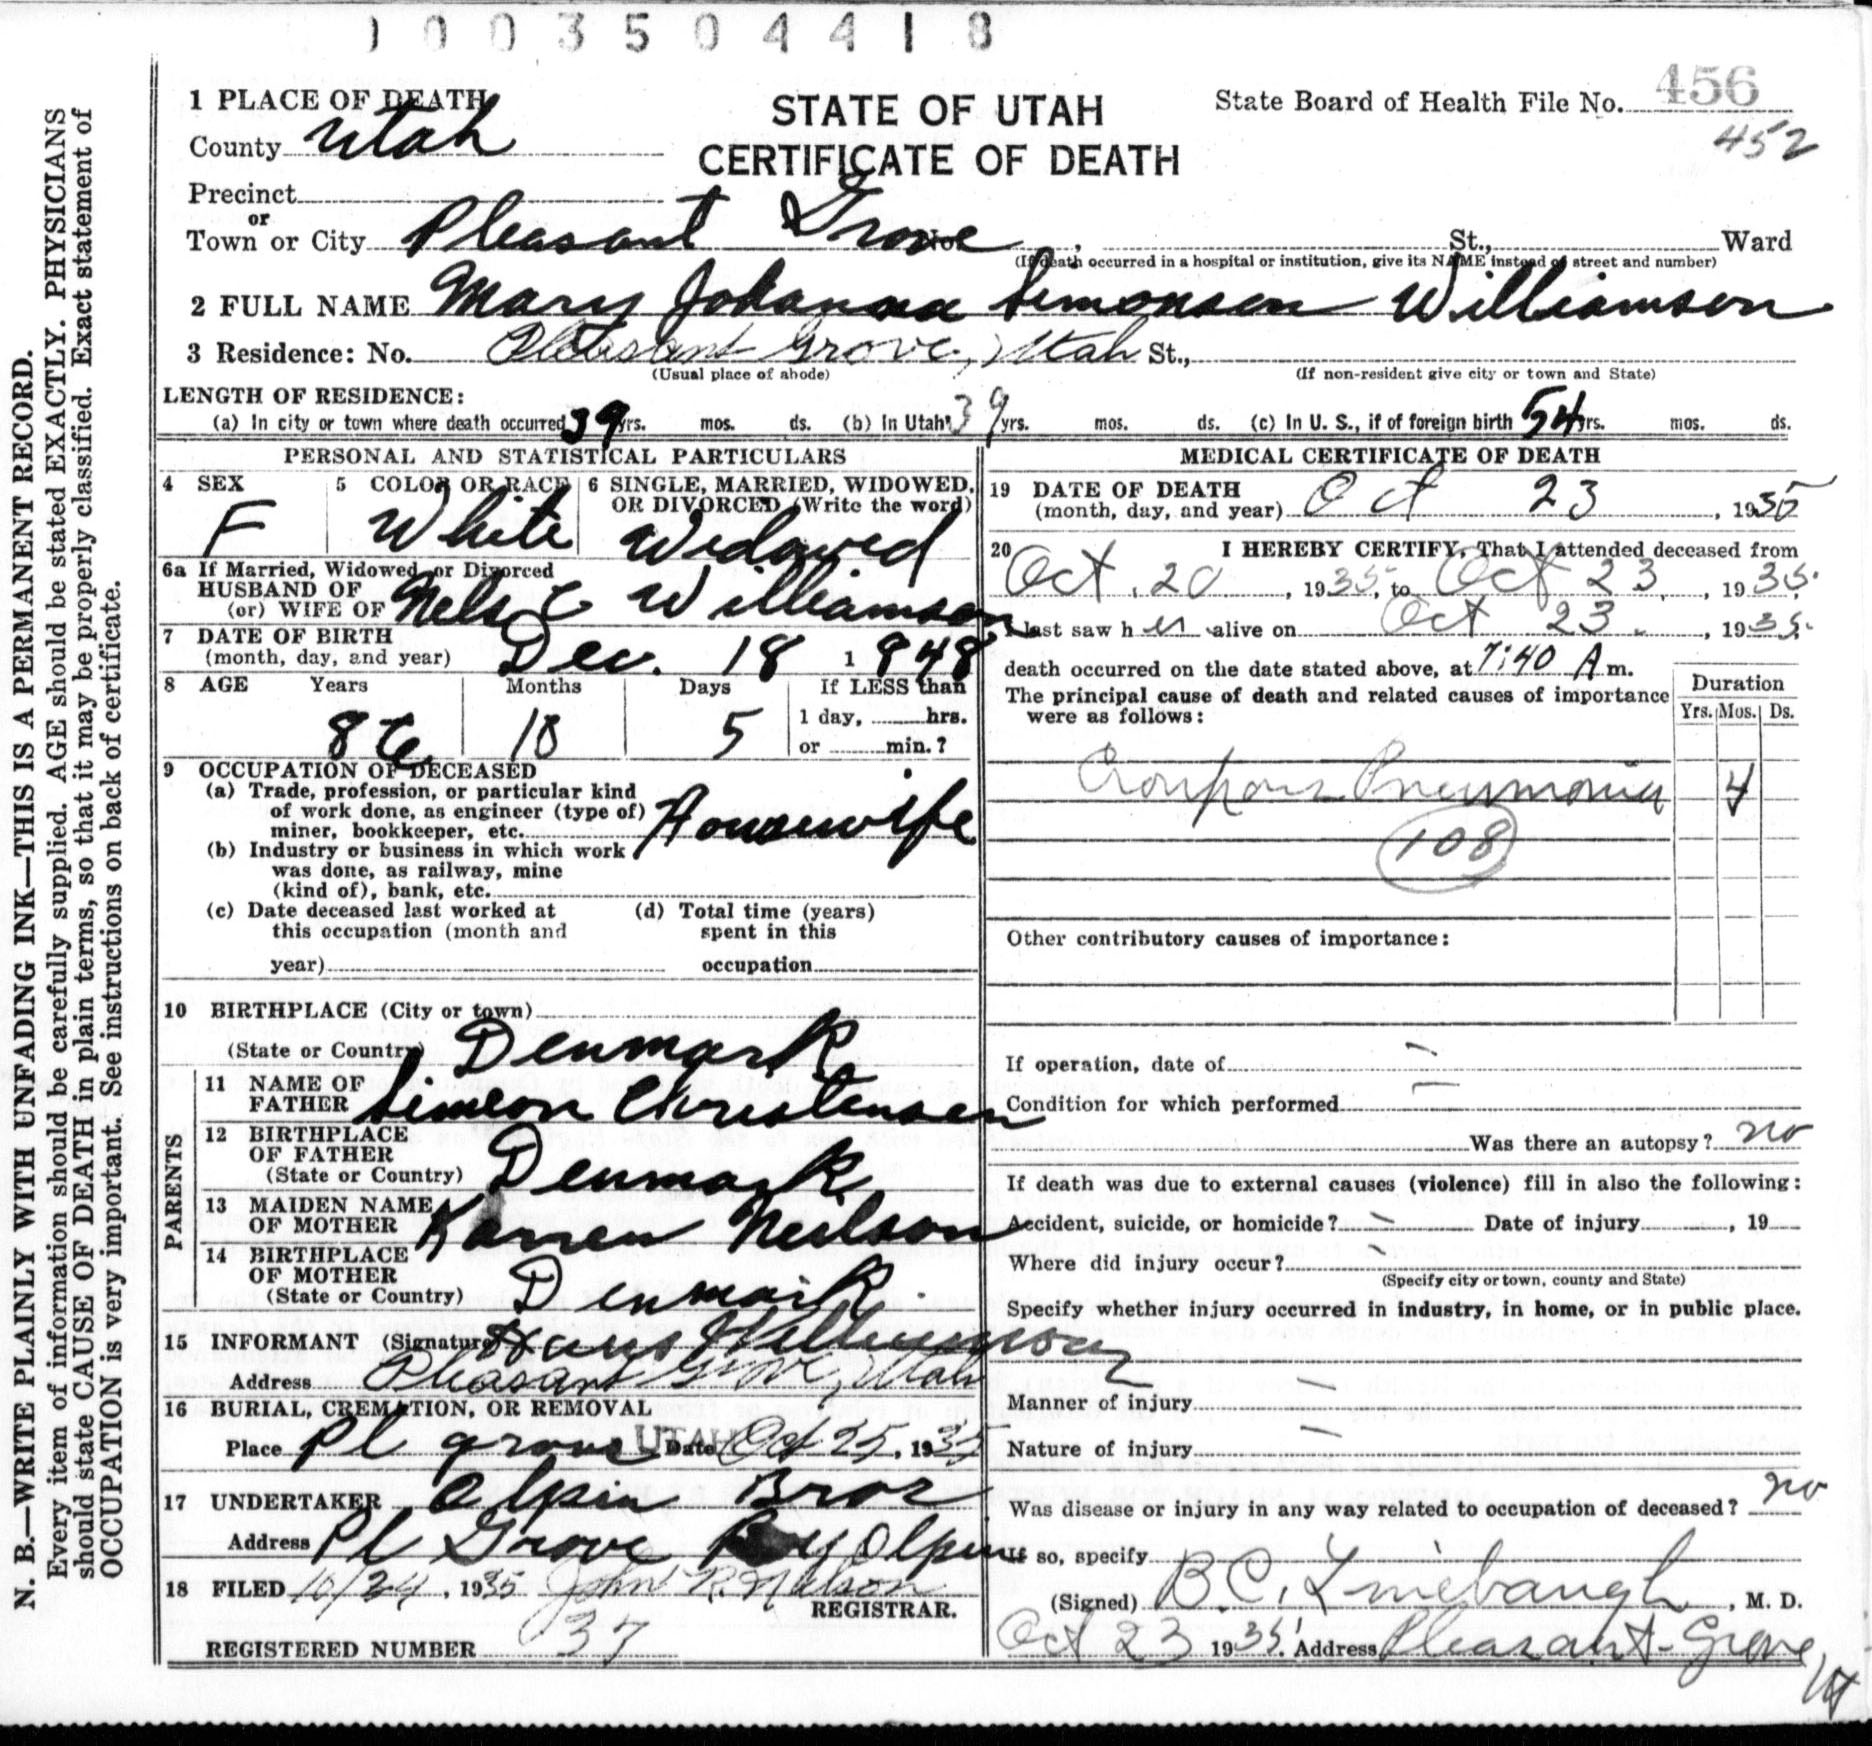 1003504418
1 PLACE OF DEATH
STATE OF UTAH
CERTIFICATE OF DEATH
State Board of Health File No. 456
452
County Utah
Precinct
or
Town or City Pleasant Grove No. , St., Ward
(If death occurred in a hospital or institution, give its NAME instead of street and number)
2 FULL NAME Mary Johanna Simonsen Williamson
3 Residence: No. Pleasant Grove, Utah St.,
(Usual place of abode) (If non-resident give city or town and State)
LENGTH OF RESIDENCE:
(a) In city or town where death occurred 39 yrs. mos. ds. (b) In Utah 39 yrs. mos. ds. (c) In U. S., if of foreign birth 54 yrs. mos. ds.
PERSONAL AND STATISTICAL PARTICULARS
4 SEX
F
5 COLOR OR RACE
White
6 SINGLE, MARRIED, WIDOWED,
OR DIVORCED (Write the word)
Widowed
6a If Married, Widowed or Divorced
HUSBAND OF
(or) WIFE OF Nels C Williamson
7 DATE OF BIRTH
(month, day, and year) Dec. 18 1848
8 AGE Years Months Days If LESS than
1 day, hrs.
or min.?
86 10 5
9 OCCUPATION OF DECEASED
(a) Trade, profession, or particular kind
of work done, as engineer (type of)
miner, bookkeeper, etc. Housewife
(b) Industry or business in which work
was done, as railway, mine
(kind of), bank, etc.
(c) Date deceased last worked at
this occupation (month and
year)
(d) Total time (years)
spent in this
occupation
10 BIRTHPLACE (City or town)
(State or Country) Denmark
PARENTS
11 NAME OF
FATHER Simeon Christensen
12 BIRTHPLACE
OF FATHER
(State or Country) Denmark
13 MAIDEN NAME
OF MOTHER Karren Neilson
14 BIRTHPLACE
OF MOTHER
(State or Country) Denmark.
15 INFORMANT (Signature) Hans Williamson
Address Pleasant Grove, Utah
16 BURIAL, CREMATION, OR REMOVAL
Place Pl grove UTAH Date Oct 25, 1935
17 UNDERTAKER Olpin Bros
Address Pl Grove Roy Olpin
18 FILED 10/24, 1935 John R. Nelson
REGISTRAR.
REGISTERED NUMBER 37
MEDICAL CERTIFICATE OF DEATH
19 DATE OF DEATH
(month, day, and year) Oct 23, 1935
20 I HEREBY CERTIFY, That I attended deceased from
Oct. 20, 1935, to Oct 23, 1935.
I last saw her alive on Oct 23., 1935.
death occurred on the date stated above, at 7:40 A m.
The principal cause of death and related causes of importance
were as follows:
Duration
Yrs. Mos. Ds.
Croupous Pneumonia 4
108
Other contributory causes of importance:
If operation, date of –
Condition for which performed –
Was there an autopsy? no
If death was due to external causes (violence) fill in also the following:
Accident, suicide, or homicide? – Date of injury , 19
Where did injury occur? –
(Specify city or town, county and State)
Specify whether injury occurred in industry, in home, or in public place.
Manner of injury –
Nature of injury –
Was disease or injury in any way related to occupation of deceased? no
If so, specify
(Signed) B.C. Linebaugh, M. D.
Oct 23 1935. Address Pleasant Grove Ut
N. B.—WRITE PLAINLY WITH UNFADING INK—THIS IS A PERMANENT RECORD.
Every item of information should be carefully supplied. AGE should be stated EXACTLY. PHYSICIANS
should state CAUSE OF DEATH in plain terms, so that it may be properly classified. Exact statement of
OCCUPATION is very important. See instructions on back of certificate.